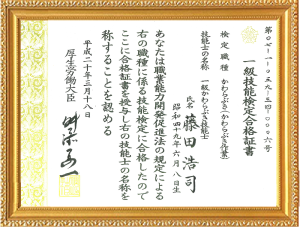 第〇七-一-〇五九-三四-〇〇〇六号
一級技能検定合格証書
検定職種 かわらぶき(かわらぶき作業)
技能士の名称 一級かわらぶき技能士
氏名 藤田浩司
昭和四十九年六月八日生
あなたは職業能力開発促進法の規定による
右の職種に係る技能検定に合格したので
ここに合格証書を授与し右の技能士の名称を
称することを認める
平成二十年三月十八日
厚生労働大臣